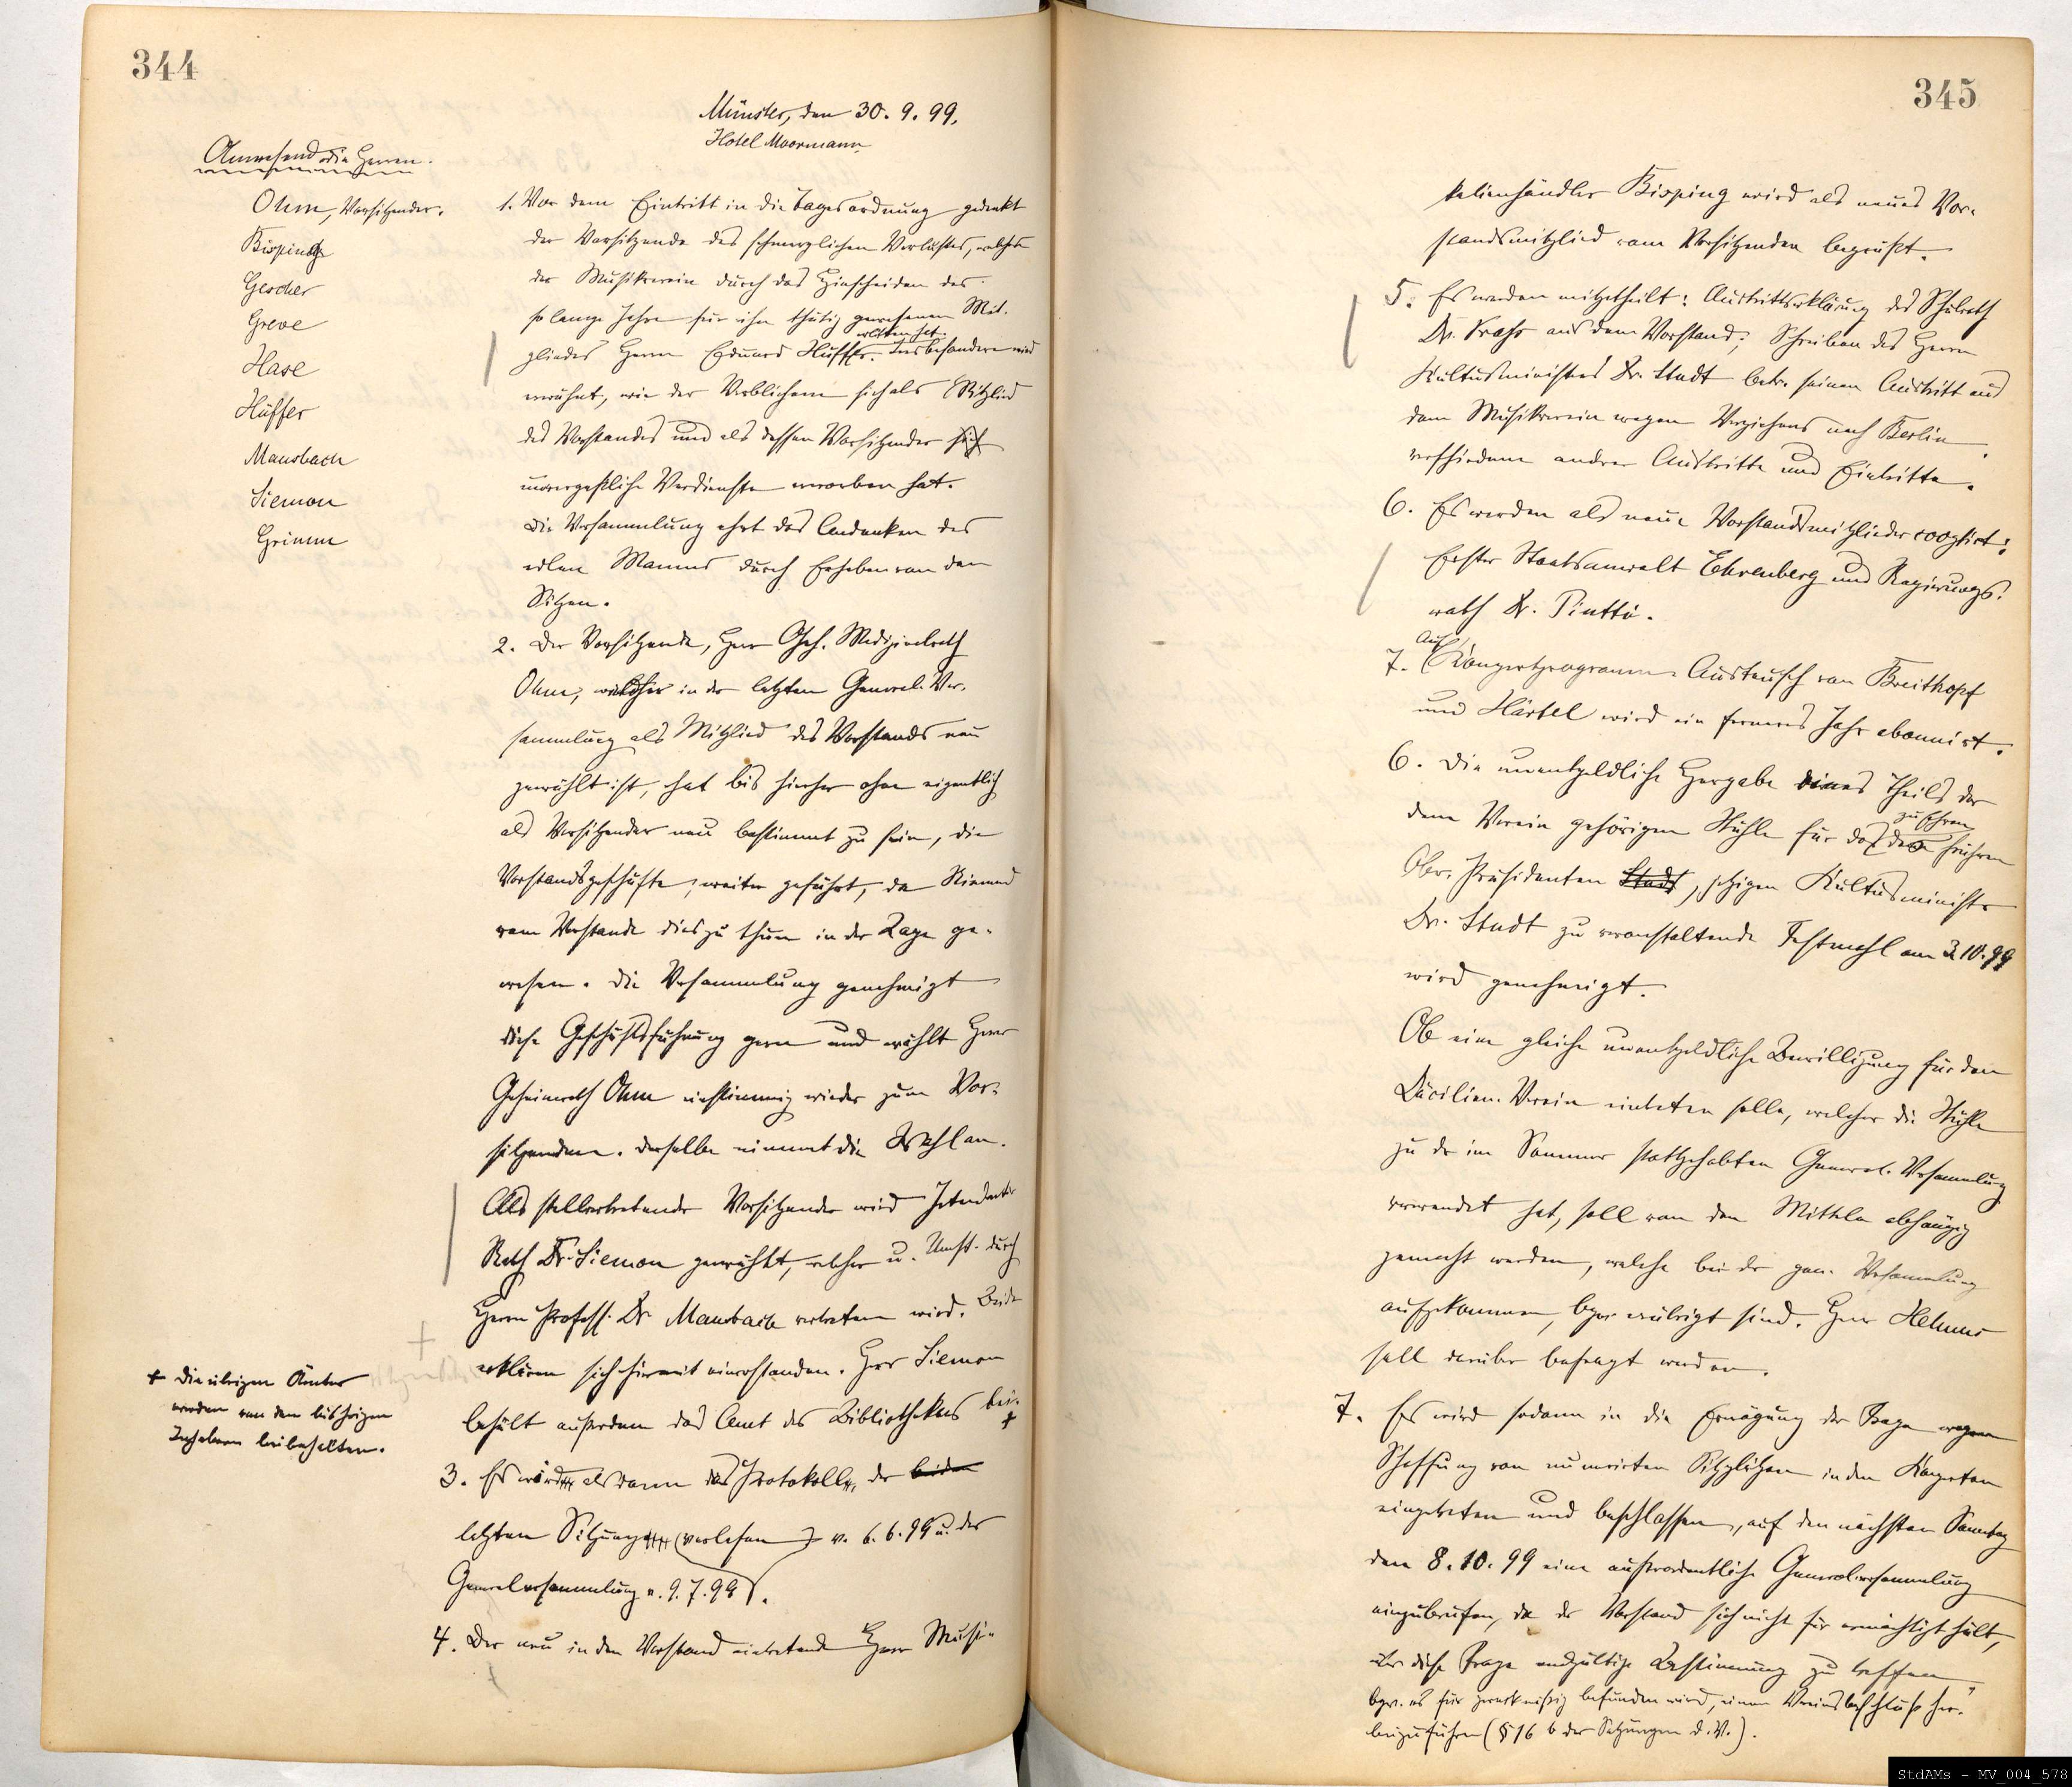 344
Münster, den 30. 9. 99.
Hotel Moormann
Anwesend die Herren.
Ohm, Vorsitzender.
Bisping
Gescher
Greve
Hase
Hüffer
Mausbach
Siemon
Grimm
1. Vor dem Eintritt in die Tagesordnung gedenkt
der Vorsitzende des schmerzlichen Verlustes, welchen
der Musikverein durch das Hinscheiden des
so lange Jahre für ihn thätig gewesenen Mit-
gliedes Herrn Eduard Hüffer erlitten hat. Insbesondere wird
erwähnt, wie der Verblichene sich als Mitglied
des Vorstandes und als dessen Vorsitzender sich
unvergeßliche Verdienste erworben hat.
Die Versammlung ehrt das Andenken des
edlen Mannes durch Erheben von den
Sitzen.
2. Der Vorsitzende, Herr Geh. Medizinalrath
Ohm, welcher in der letzten General-Ver-
sammlung als Mitglied des Vorstands neu
gewählt ist, hat bis hierher ohne eigentlich
als Vorsitzender neu bestimmt zu sein, die
Vorstandsgeschäfte weiter geführt, da Niemand
vom Vorstande dies zu thun in der Lage ge-
wesen. Die Versammlung genehmigt
diese Geschäftsführung gern und wählt Herrn
Geheimrath Ohm einstimmig wieder zum Vor-
sitzenden. Derselbe nimmt die Wahl an.
Als stellvertretender Vorsitzender wird Intendantur
Rath Dr. Siemon gewählt, welcher u. Umst. durch
Herrn Profess. Dr Mausbach vertreten wird. Beide
erklären sich hiermit einverstanden. Herr Siemon
behält außerdem das Amt des Bibliothekars bei. +
+ Die übrigen Ämter
werden von den bisherigen
Inhabern beibehalten.
3. Es wird alsdann das Protokoll der beiden
letzten Sitzung (verlesen) v. 6. 6. 99 u. der
Generalversammlung v. 9. 7. 99.
4. Der neu in den Vorstand eintretende Herr Musi-
345
kalienhändler Bisping wird als neues Vor-
standsmitglied vom Vorsitzenden begrüßt.
5. Es werden mitgetheilt: Austrittserklärung des Schulrath
Dr. Krass aus dem Vorstand; Schreiben des Herrn
Kultusministers Dr. Studt betr. seinen Austritt aus
dem Musikverein wegen Verziehens nach Berlin,
verschiedene andere Austritte und Eintritte.
6. Es werden als neue Vorstandsmitglieder cooptirt:
Erster Staatsanwalt Ehrenberg und Regierungs-
rath Dr.
7. Auf Konzertprogramm-Austausch von Breitkopf
und Härtel wird ein ferneres Jahr abonnirt.
6. Die unentgeldliche Hergabe eines Theils der
dem Verein gehörigen Stühle für das zu Ehren des früheren
Ober-Präsidenten Studt, jetzigen Kultusminister
Dr. Studt zu veranstaltende Festmahl am 3.10.99
wird genehmigt.
Ob eine gleiche unentgeldliche Bewilligung für den
Cäcilien-Verein eintreten solle, welcher die Stühle
zu der im Sommer stattgehabten General-Versammlung
verwendet hat, soll von den Mitteln abhängig
gemacht werden, welche bei der gen. Versammlung
aufgekommen, bzw. erübrigt sind. Herr Helmus
soll darüber befragt werden.
7. Es wird sodann in die Erwägung der Frage wegen
Schaffung von numerirten Sitzplätzen in den Konzerten
eingetreten und beschlossen, auf den nächsten Sonntag
den 8. 10. 99 eine außerordentliche Generalversammlung
einzuberufen, da der Vorstand sich nicht für ermächtigt hält,
über diese Frage endgültige Bestimmung zu treffen,
bzw. es für zweckmäßig befunden wird, einen Vereinsbeschluß her-
beizuführen (§ 16 b der Satzungen d. V.).
StdAMs - MV_004_578